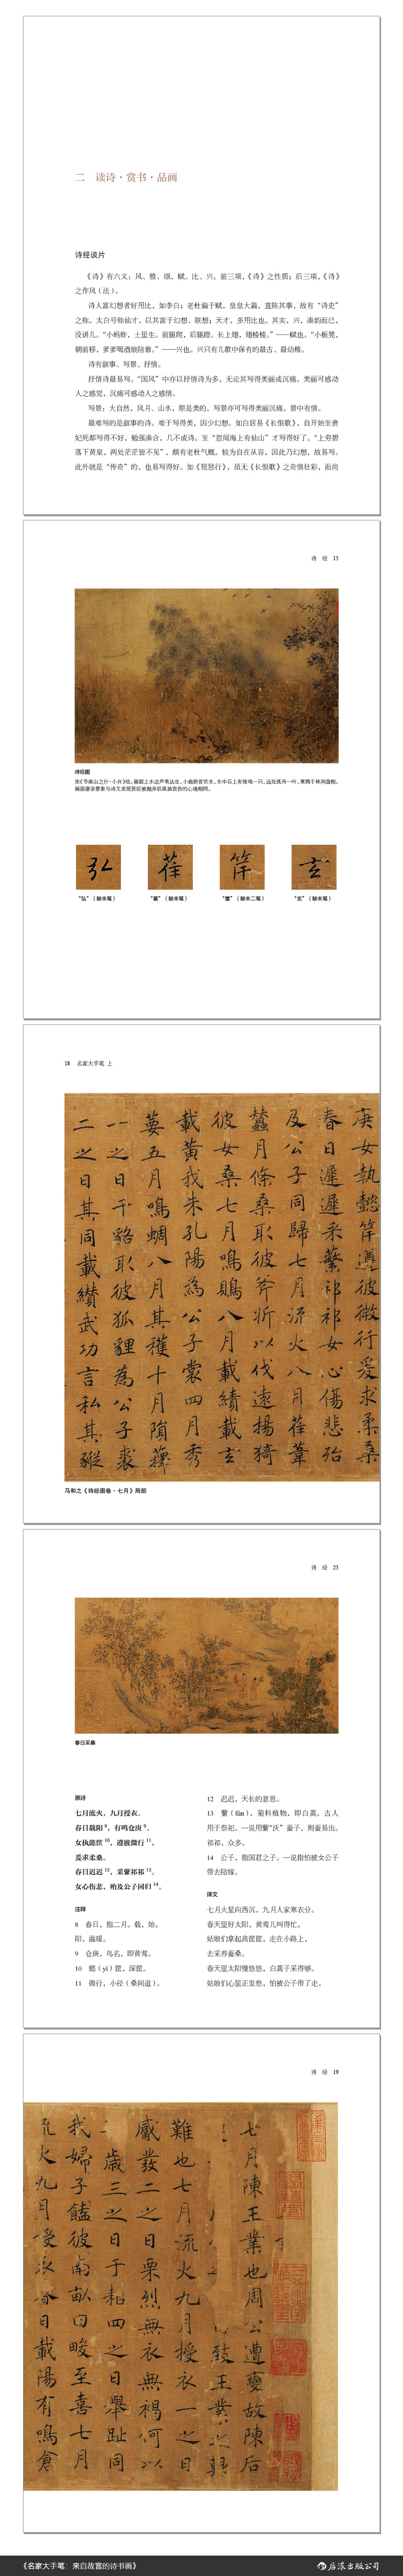 二 读诗·赏书·品画
诗经谈片
《诗》有六义:风、雅、颂,赋、比、兴。前三项,《诗》之性质;后三项,《诗》
之作风(法)。
诗人富幻想者好用比,如李白;老杜偏于赋,皇皇大篇,直陈其事,故有“诗史”
之称。太白号称仙才,以其富于幻想、联想;天才,多用比也。其实,兴,凑韵而已,
没讲儿。“小蚂蚱,土里生。前腿爬,后腿蹬。长上翅,翅棱棱。”——赋也。“小板凳,
朝前移,爹爹喝酒娘陪着。”——兴也。兴只有儿歌中保有的最古、最幼稚。
诗有叙事、写景、抒情。
抒情诗最易写。“国风”中亦以抒情诗为多,无论其写得美丽或沉痛。美丽可感动
人之感觉,沉痛可感动人之感情。
写景:大自然,风月、山水,原是美的。写景亦可写得美丽沉痛,景中有情。
最难写的是叙事的诗。难于写得美,因少幻想。如白居易《长恨歌》,自开始至贵
妃死都写得不好,勉强凑合,几不成诗。至“忽闻海上有仙山”才写得好了。“上穷碧
落下黄泉,两处茫茫皆不见”,颇有老杜气概。较为自在从容,因此乃幻想,故易写。
此外就是“传奇”的,也易写得好。如《琵琶行》,虽无《长恨歌》之奇情壮彩,而尚
诗 经 15
诗经图
“弘”(缺末笔)
“萑”(缺末笔)
“筐”(缺末二笔)
“玄”(缺末笔)
18 名家大手笔 上
庚女執懿筐遵彼微行爰求柔桑
春日遲遲采蘩祁祁女心傷悲殆
及公子同歸七月流火八月萑葦
蠶月條桑取彼斧斨以伐遠揚猗
彼女桑七月鳴鵙八月載績載玄
載黃我朱孔陽為公子裳四月秀
葽五月鳴蜩八月其穫十月隕蘀
一之日于貉取彼狐貍為公子裘
二之日其同載纘武功言私其豵
马和之《诗经图卷·七月》局部
诗 经 23
春日采桑
原诗
七月流火,九月授衣。
春日载阳8,有鸣仓庚9。
女执懿筐10,遵彼微行11,
爰求柔桑。
春日迟迟12,采蘩祁祁13。
女心伤悲,殆及公子同归14。
注释
8 春日,指二月。载,始。
阳,温暖。
9 仓庚,鸟名,即黄莺。
10 懿(yì)筐,深筐。
11 微行,小径(桑间道)。
12 迟迟,天长的意思。
13 蘩(fán),菊科植物,即白蒿。古人
用于祭祀。一说用蘩“沃”蚕子,则蚕易出。
祁祁,众多。
14 公子,指国君之子。一说指怕被女公子
带去陪嫁。
译文
七月火星向西沉,九月人家寒衣分。
春天里好太阳,黄莺儿叫得忙。
姑娘们拿起高筐筐,走在小路上,
去采养蚕桑。
春天里太阳慢悠悠,白蒿子采得够。
姑娘们心里正发愁,怕被公子带了走。
诗 经 19
七月陳王業也周公遭變故陳后
難也七月流火九月授衣一之日
觱發二之日栗烈無衣無褐何以
歲三之日于耜四之日舉趾同
我婦子饁彼南畝田畯至喜七月
流火九月授衣春日載陽有鳴倉
《名家大手笔:来自故宫的诗书画》
后浪出版公司